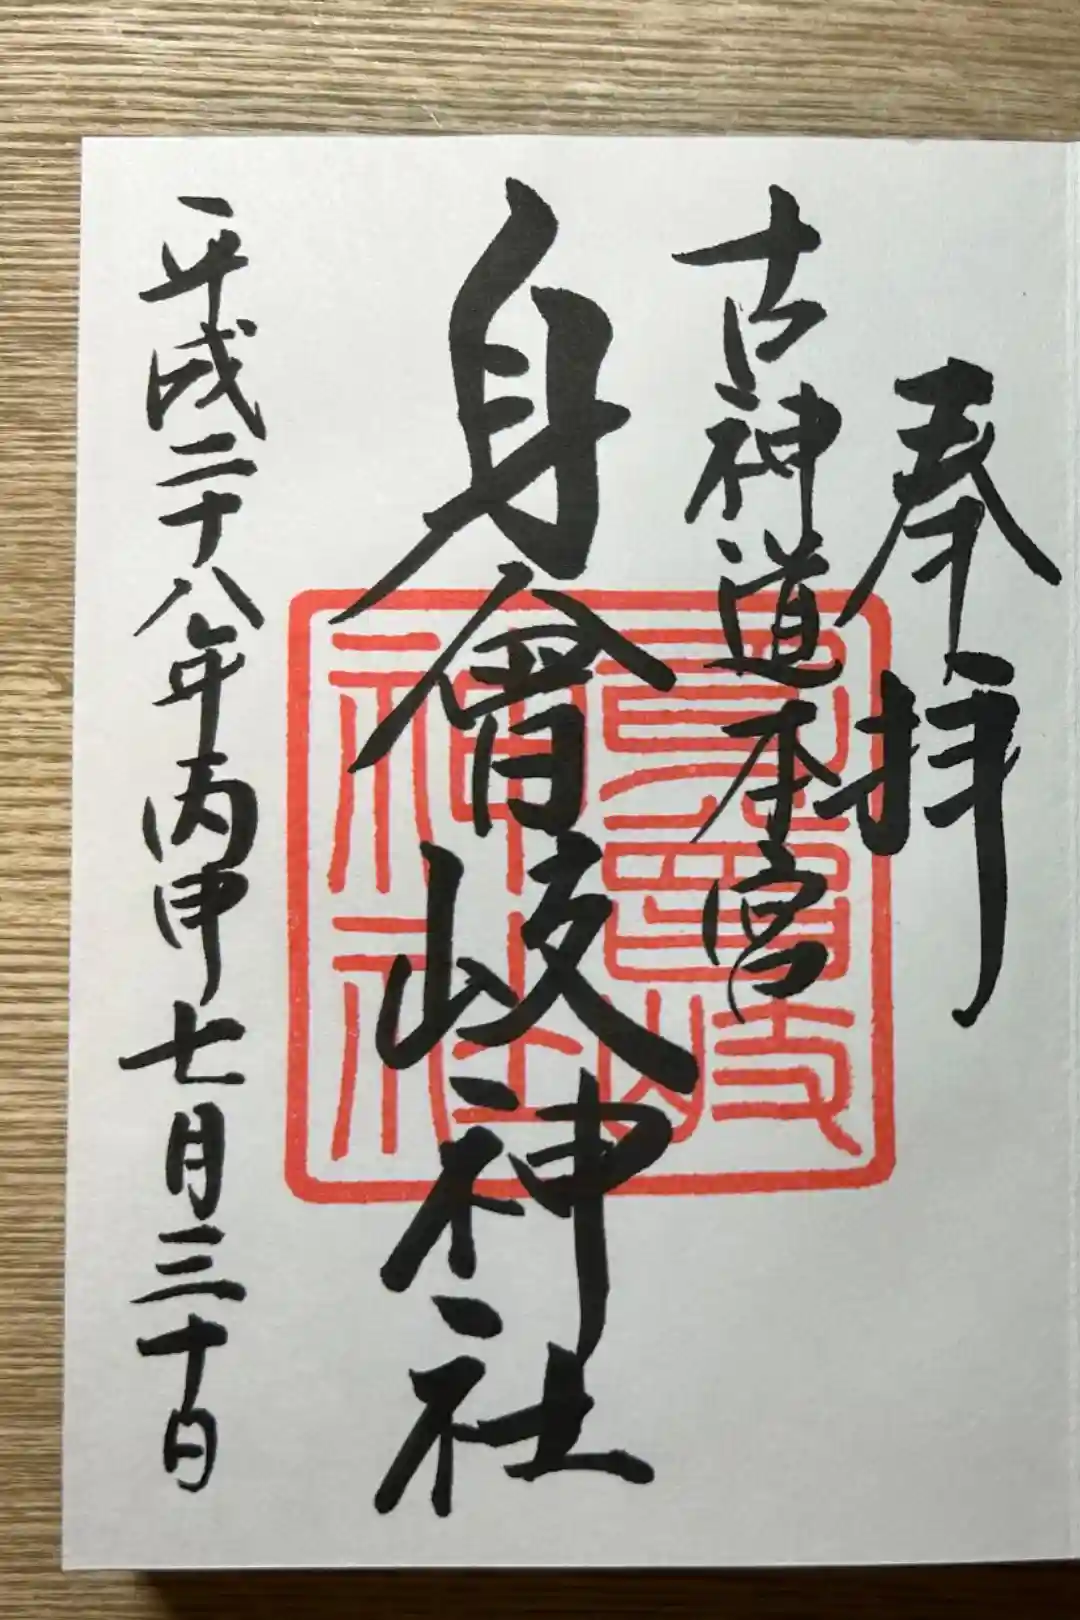 奉拝
古神道本宮
身曾岐神社
平成二十八年丙申七月三十日
身曾岐
神社